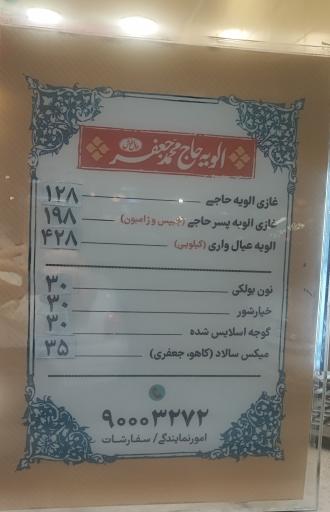 الویه حاج محمد جعفر
غازی الویه حاجی ۱۲۸
غازی الویه پسر حاجی (چیپس و ژامبون) ۱۹۸
الویه عیال واری (کیلویی) ۴۲۸
نون بولکی ۳۰
خیارشور ۳۰
گوجه اسلایس شده ۳۰
میکس سالاد (کاهو، جعفری) ۳۵
۹۰۰۰۳۲۷۲
امورنمایندگی/ سفارشات